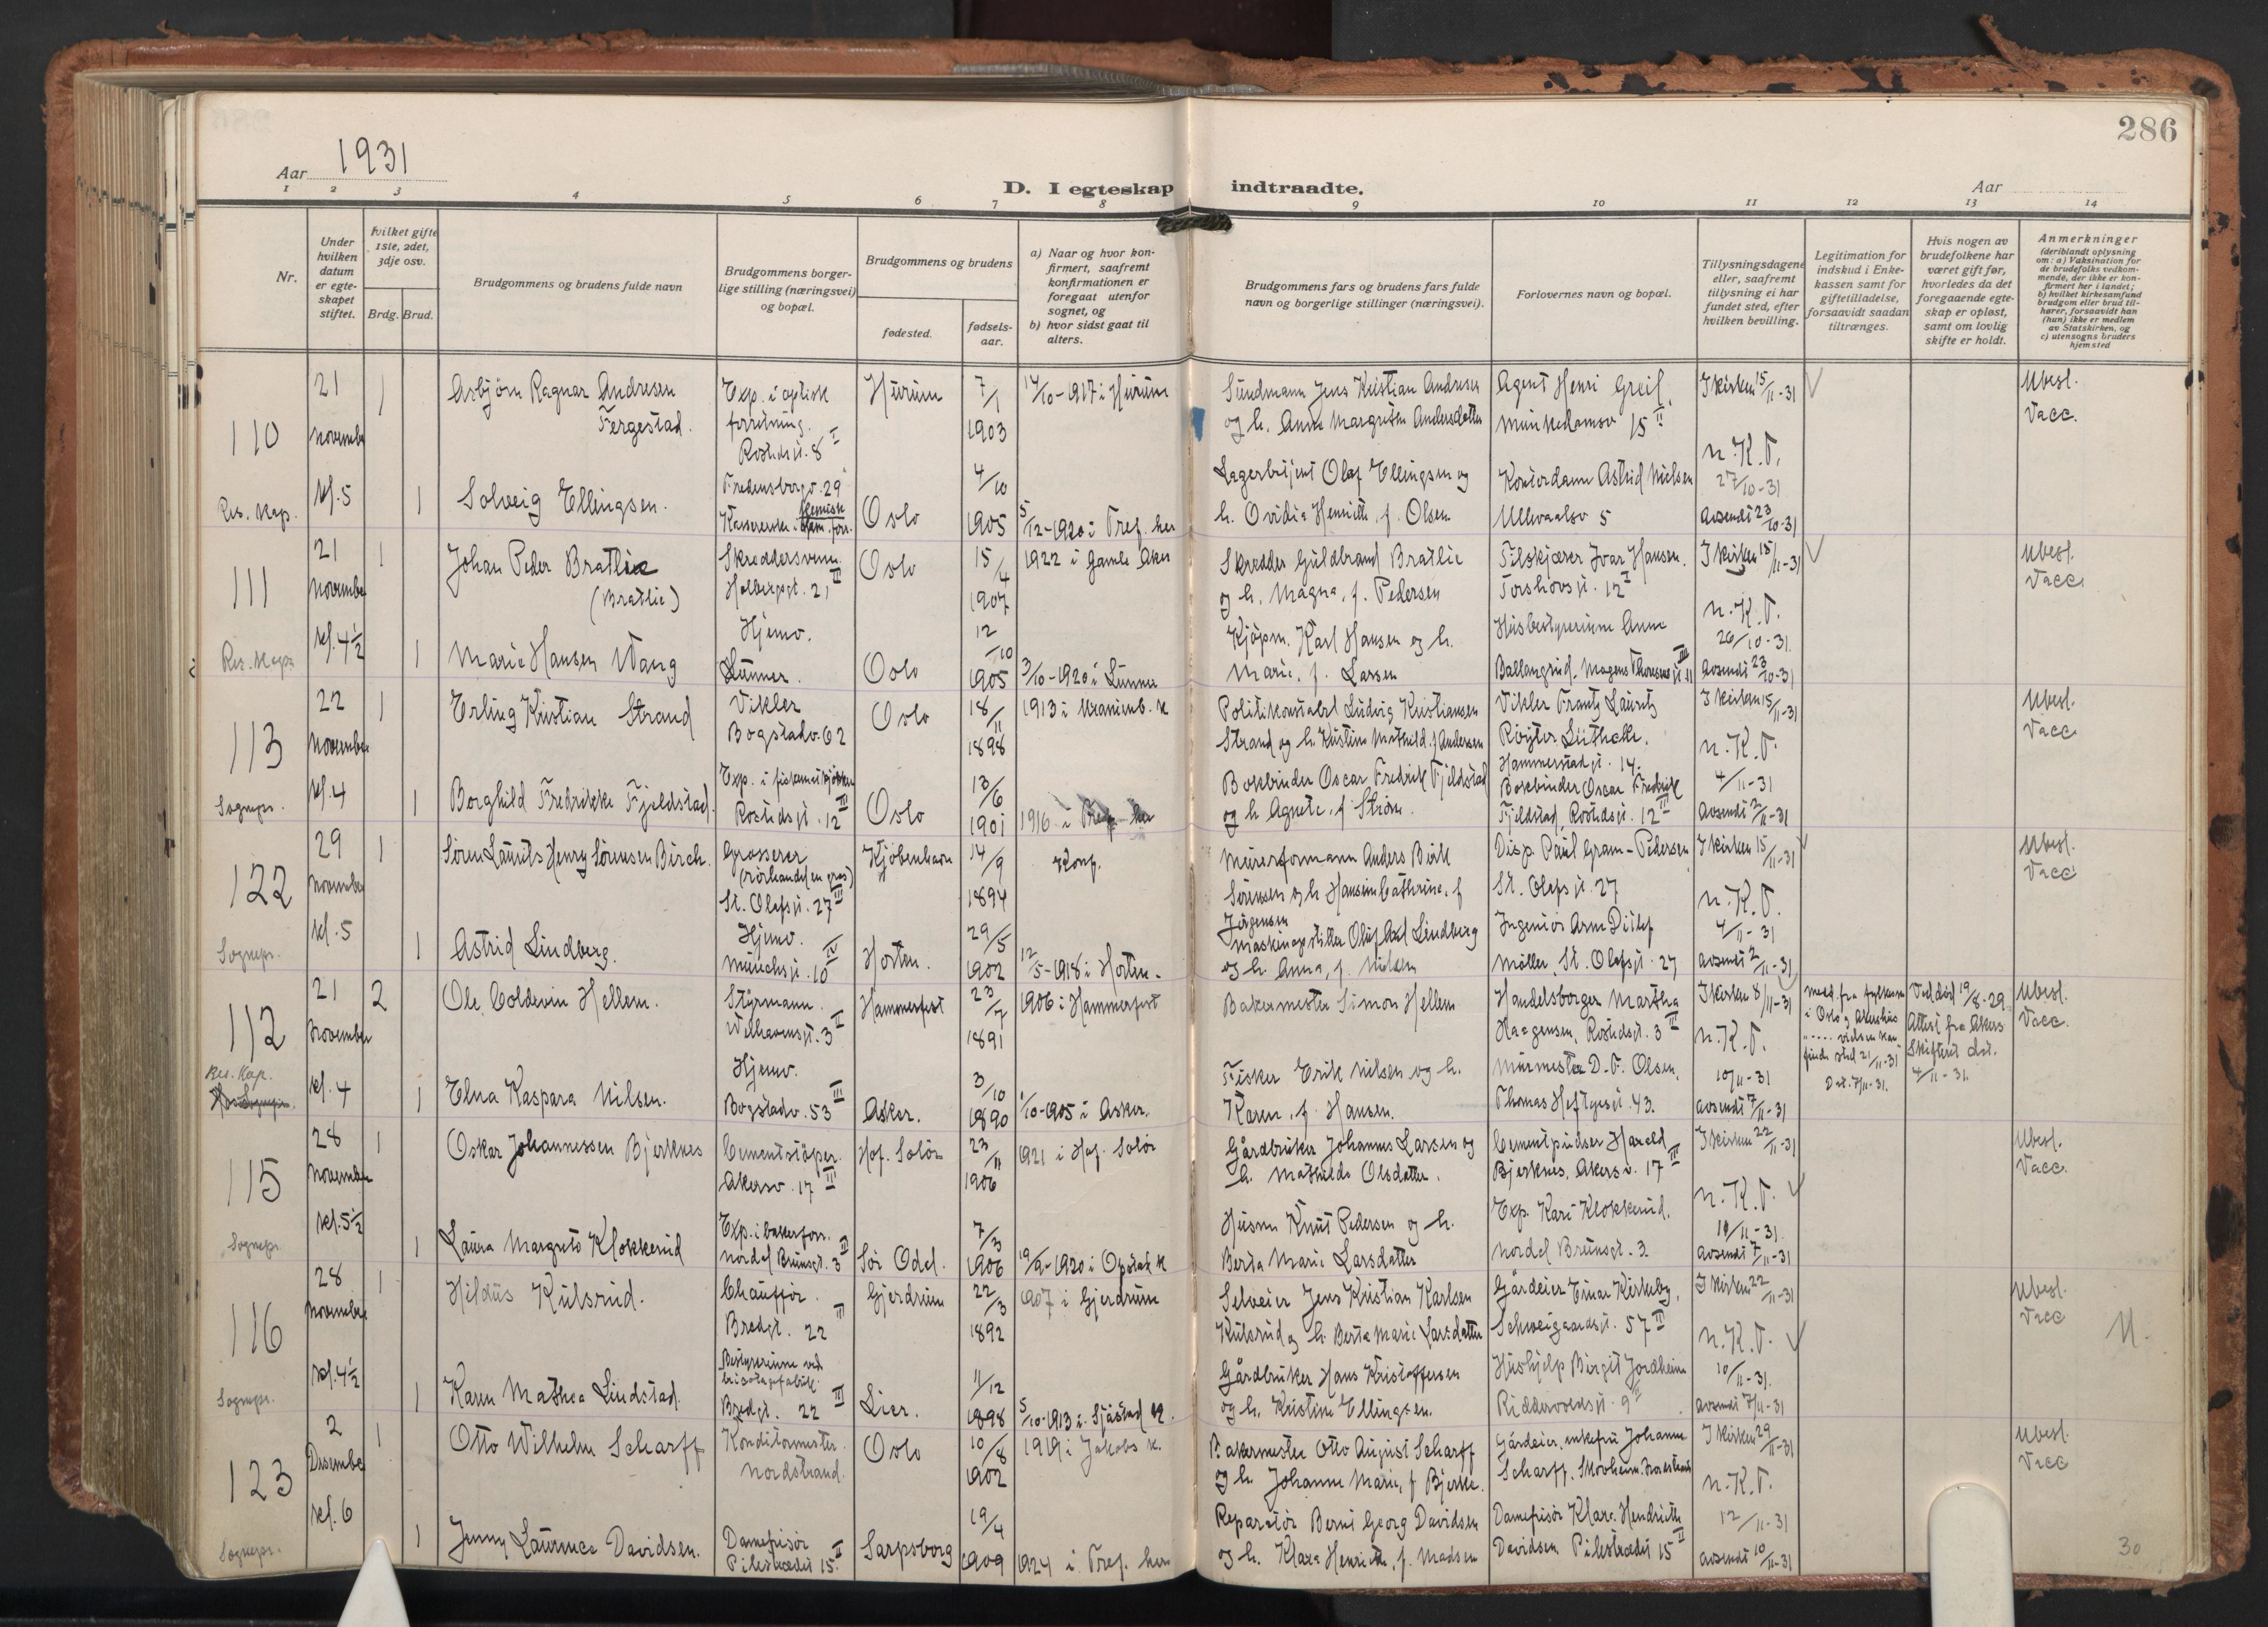 286
Aar 1931
D. I egteskap indtraadte.
Aar
1 2 3 4 5 6 7 8 9 10 11 12 13 14
Nr.
Under hvilken datum er egte-skapet stiftet.
hvilket gifte 1ste, 2det, 3dje osv.
Brdg. Brud.
Brudgommens og brudens fulde navn
Brudgommens borger-lige stilling (næringsvei) og bopæl.
Brudgommens og brudens
fødested.
fødsels-aar.
a) Naar og hvor kon-firmert, saafremt konfirmationen er foregaat utenfor sognet, og
b) hvor sidst gaat til alters.
Brudgommens fars og brudens fars fulde navn og borgerlige stillinger (næringsvei).
Forlovernes navn og bopæl.
Tillysningsdagene eller, saafremt tillysning ei har fundet sted, efter hvilken bevilling.
Legitimation for indskud i Enke-kassen samt for giftetilladelse, forsaavidt saadan tiltrænges.
Hvis nogen av brudefolkene har været gift før, hvorledes da det foregaaende egte-skap er opløst, samt om lovlig skifte er holdt.
Anmerkninger (deriblandt oplysning om: a) Vaksination for de brudefolks vedkom-mende, der ikke er kon-firmert her i landet; b) hvilket kirkesamfund brudgom eller brud til-hører, forsaavidt han (hun) ikke er medlem av Statskirken, og c) utensogns bruders hjemsted
110 21 november kl. 5 Res. kap.
1 Asbjørn Ragnar Andresen Fergestad. Exp. i optisk forretning. Rosteds gt. 8 II Hurum 7/1 1903 14/10-1917 i Hurum
Sundmann Jens Kristian Andresen og h. Anne Margrethe Andersdatter
Agent Henri Greif, Munkedamsv 15 II
I kirken 15/11-31 n. K. T. 27/10-31 avsendt 23/10-31
Ubesl. Vacc.
1 Solveig Ellingsen. Fredensborgv. 29 Kassererske i kemisk forr. Oslo 4/10 1905 5/12-1920 i Tref. her
Lagerbetjent Olaf Ellingsen og h. Ovidia Henriette, f. Olsen
Kontordame Astrid Nielsen Ullevaalsv 5
111 21 november kl. 4 1/2 Res. kap.
1 Johan Peder Bratlie (Bratlie) Skreddersvenn. Holbergsgt. 21 III Oslo 15/4 1907 1922 i Gamle Aker
Skredder Guldbrand Bratlie og h. Magna, f. Pedersen
Filskjærer Ivar Hansen. Torshovsgt. 12 I
I kirken 15/11-31 n. K. T. 26/10-31. avsendt 23/10-31
Ubesl. Vacc.
1 Marie Hansen Wang Hjemv. Lunner. Oslo 12/10 1905 3/10-1920 i Lunner
Kjøpm. Karl Hansen og h. Marie, f. Larsen
Husbestyrerinne Anne Ballangrud. Magnus Thoresens gt 11 III
113 22 november kl. 4 Sognepr.
1 Erling Kristian Strand Vikler Bogstadv. 62 Oslo 18/11 1898 1913 i Uranienb. k
Politikonstabel Ludvig Kristiansen Strand og h. Kristine Mathild. f Andersen
Vikler Frantz Lauritz Røyter Lütheke. Hammerstad gt. 14.
I kirken 15/11-31 n. K. T. 4/11-31 avsendt 2/11-31
Ubesl. Vacc
1 Borghild Fredrikke Fjeldstad. Exp. i fiskematkjøkken Rosteds gt. 12 III Oslo 13/6 1901 1916 i Tref. her
Bokbinder Oscar Fredrik Fjeldstad og h Agnete, f Strøm.
Bokbinder Oscar Fredrik Fjeldstad, Rosteds gt. 12 III
122 29 november kl. 5 Sognepr.
1 Søren Laurits Henry Sørensen Birch. Grosserer (rørhandel en gros) St. Olafs gt. 27 III Kjøbenhavn 14/9 1894 Konf.
Murerformann Anders Birk Sørensen og h Hansine Cathrine, f Jørgensen
Disp. Paul Gram-Pedersen St. Olafs gt. 27
I kirken 15/11-31 n. K. T. 4/11-31 avsendt 2/11-31
Ubesl. Vacc
1 Astrid Lindberg. Hjemv. Munchs gt. 10 IV Horten. 29/5 1902 12/5-1918 i Horten.
Maskinopstiller Oluf Axel Lindberg og h. Anna, f. Nielsen
Ingeniør Arne Ditlef Møller, St. Olafs gt. 27
112 21 November kl. 4 Res. Kap.
2 Ole Coldevin Hellem. Styrmann. Welhavensgt. 3 II Hammerfest 23/7 1891 1906 i Hammerfest
Bakermester Simon Hellem
Handelsborger Martha Haagensen, Rosteds gt. 3 III
I kirken 8/11-31 n. K. T. 10/11-31 avsendt 7/11-31
Medd. fra fylkesm. i Oslo og Akershus vielsen kan finde sted 21/11-31 Dat. 7/11-31.
Ved død 19/8-29 Attest fra Akers Skifterett dat. 4/11-31.
Ubesl. Vacc.
1 Elna Kaspara Nilsen. Hjemv. Bogstadv. 53 III Asker. 3/10 1890 1/10-1905 i Asker.
Fisker Erik Nilsen og h. Karen, f. Hansen.
Murmester D. F. Olsen, Thomas Heftyes gt. 43.
115 28 november kl. 5 1/2 Sognepr
1 Oskar Johannessen Bjerknes Cementstøper. Akersv. 17 III Hof. Solør 23/11 1906 1921 i Hof. Solør
Gårdbruker Johannes Larsen og h. Mathilde Olsdatter.
Cementpusser Harald Bjerknes, Akersv. 17 III
I kirken 22/11-31 n. K. T. 10/11-31. avsendt 7/11-31
Ubesl. Vacc.
1 Laura Margrete Klokkerud Exp. i bakerforr. Nordal Brunsgt. 3 III Sør Odal. 7/3 1906 19/9-1920 i Opstad k
Husm Knut Pedersen og h. Berta Marie Larsdatter
Exp. Kari Klokkerud. Nordal Brunsgt. 3.
116 28 november kl. 4 1/2 Sognepr.
1 Hildus Kulsrud. Chauffør. Bredgt. 22 III Gjerdrum 22/3 1892 1907 i Gjerdrum
Selveier Jens Kristian Karlsen Kulsrud og h. Berta Marie Larsdatter
Gårdeier Einar Kirkeby, Schweigaards gt. 57 II
I kirken 22/11-31 n. K. T. 10/11-31. avsendt 7/11-31
Ubesl. Vacc
U.
1 Karen Mathea Lindstad. Bestyrerinne ved tricotagefabrik. Bredgt. 22 III Lier. 11/12 1898 5/10-1913 i Sjåstad k.
Gårdbruker Hans Kristoffersen og h. Kristine Ellingsen.
Hushjelp Birgit Jordheim Riddervolds gt. 9 II
123 2 Desember kl. 6 Sognepr.
1 Otto Wilhelm Scharff Konditormester. Nordstrand. Oslo 10/8 1902 1919 i Jakobs k.
Bakermester Otto August Scharff og h. Johanne Marie, f Bjerke.
Gårdeier, enkefru Johanne Scharff. Skovheim. Nordstrand
I kirken 29/11-31 n. K. T. 12/11-31 avsendt 10/11-31
Ubesl. Vacc
1 Jenny Laurence Davidsen. Damefrisør Pilestrædet 15 II Sarpsborg 19/4 1909 1924 i Tref. her
Reparatør Bernt Georg Davidsen og h. Klara Henriette, f. Madsen
Damefrisør Klara Hendriette Davidsen Pilestrædet 15 II
30